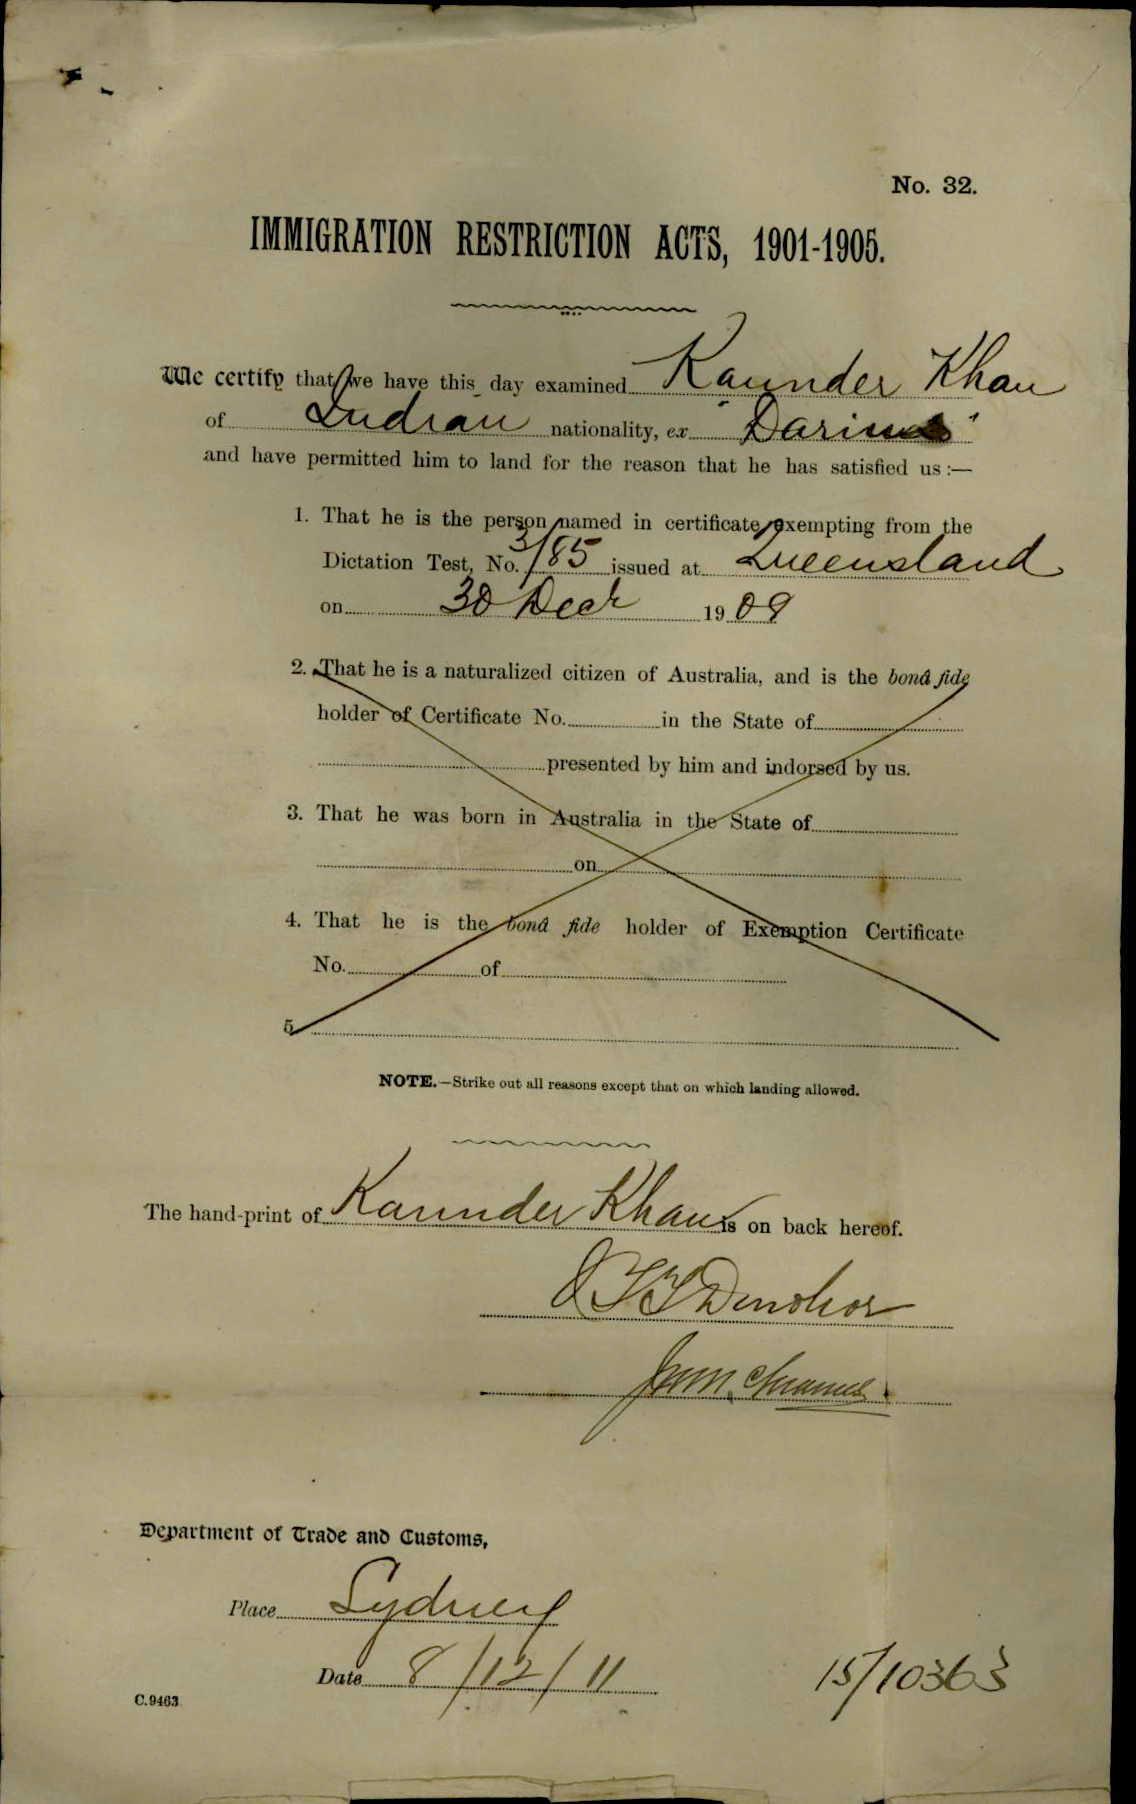 No. 32.
IMMIGRATION RESTRICTION ACTS, 1901-1905.
We certify that we have this day examined Kaunder Khan
of Indian nationality, ex "Darius"
and have permitted him to land for the reason that he has satisfied us :—
1. That he is the person named in certificate exempting from the
Dictation Test, No. 3/85 issued at Queensland
on 30 Decr 1909
2. That he is a naturalized citizen of Australia, and is the bonâ fide
holder of Certificate No. in the State of
presented by him and indorsed by us.
3. That he was born in Australia in the State of
on
4. That he is the bonâ fide holder of Exemption Certificate
No. of
5
NOTE.—Strike out all reasons except that on which landing allowed.
The hand-print of Kaunder Khan is on back hereof.
Department of Trade and Customs,
Place Sydney
Date 8/12/11
15/10363
C.9463